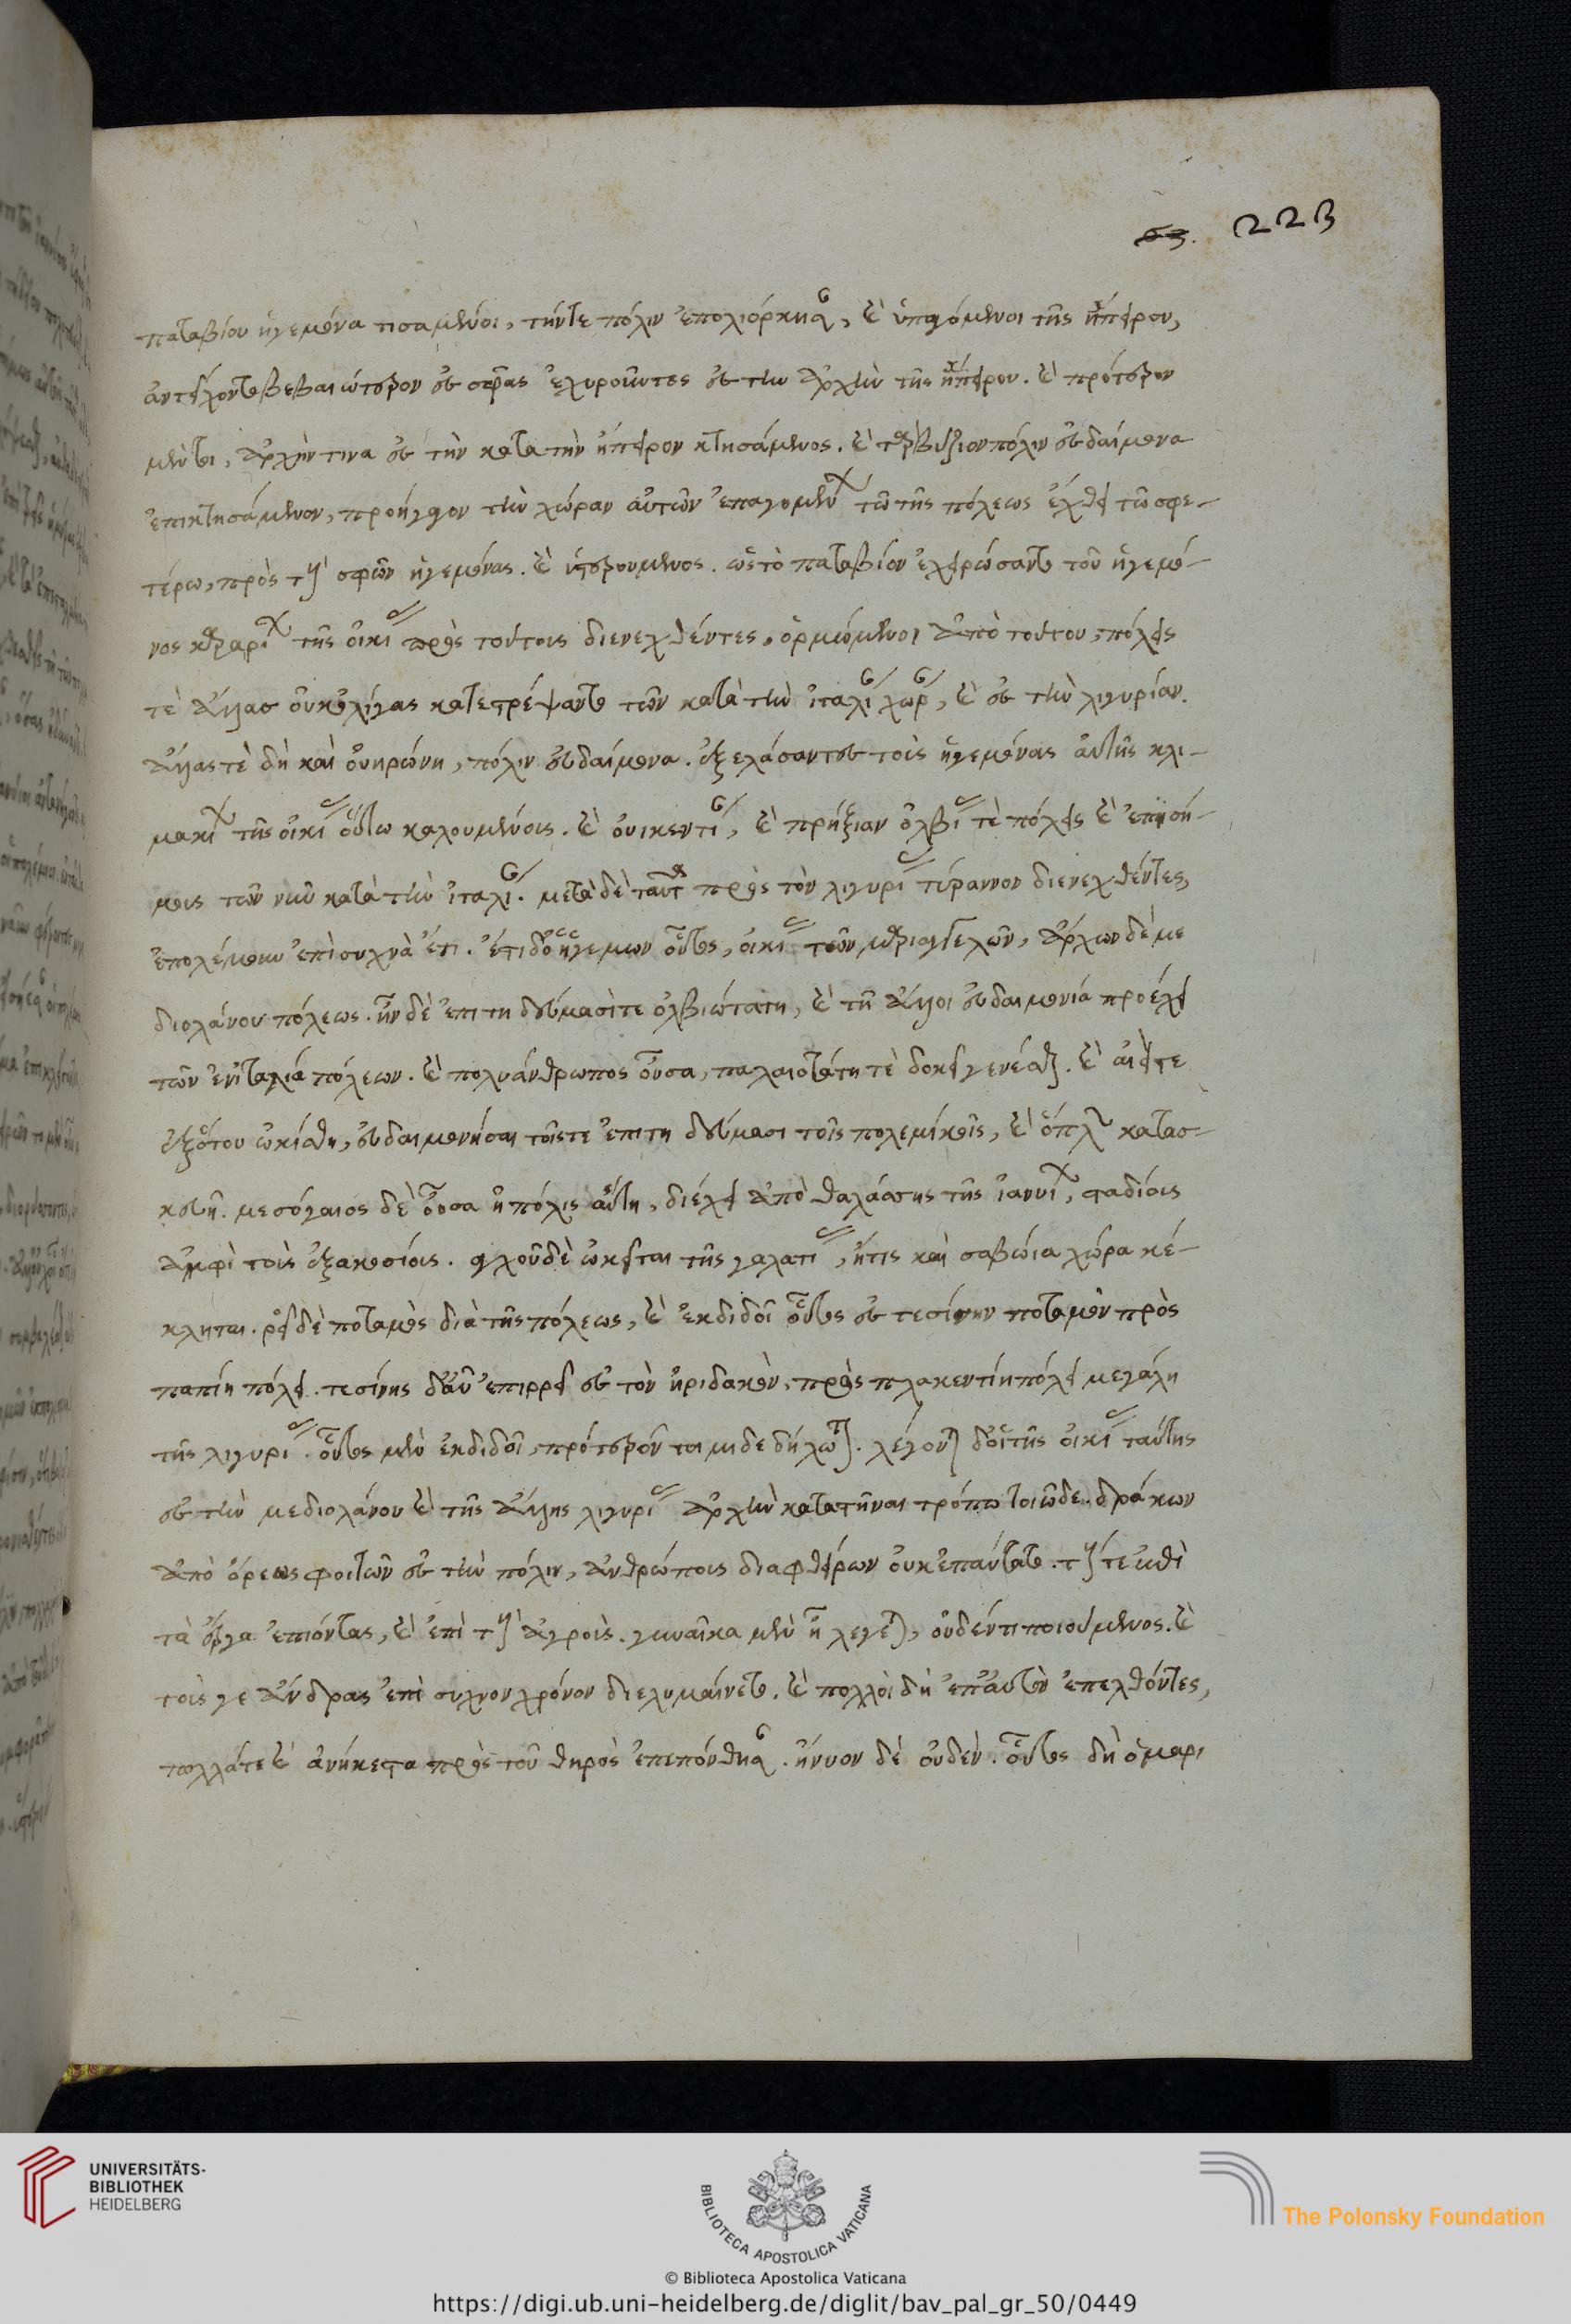 παταβίου ἡγεμόνα τισαμένοι, τήντε πόλιν ἐπολιόρκησαν, καὶ ὑπαγόμενοι τῆς ἠπείρου,
ἀντείχοντο βεβαιώτερον ἐς σφᾶς ἐχυροῦντες ἐς τὴν ἀρχὴν τῆς ἠπείρου. καὶ πρότερον
μέντοι, ἀρχήν τινα ἐς τὴν κατα τὴν ἤπειρον κτησάμενος. καὶ ταρβίζιον πόλιν εὐδαίμονα
ἐπικτησάμενον, προήγαγον τὴν χώραν αὐτῶν ἐπαγομένων τῶ τῆς πόλεως ἔχθει τῶ σφε-
τέρω, πρὸς τοὺς σφῶν ἡγεμόνας. καὶ ὑστερούμενος. ὡς τὸ παταβίον ἐχειρώσαντο τοῦ ἡγεμό-
νος καρραρίων τῆς οἰκίας πρὸς τούτοις διενεχθέντες, ὁρμώμενοι ἀπὸ τούτου, πόλεις
τὲ ἄλλας οὐκ ὀλίγας κατεστρέψαντο τῶν κατὰ τὴν ἰταλίαν χώραν, καὶ ἐς τὴν λιγυρίαν.
ἄλλας τὲ δὴ καὶ οὐηρώνη, πόλιν εὐδαίμονα. ἐξελάσαντες τοὺς ἡγεμόνας αὐτῆς κλι-
μακίων τῆς οἰκίας οὕτω καλουμένους. καὶ οὐικεντίαν, καὶ πρηξίαν ὀλβίας τὲ πόλεις καὶ ἐπισή-
μους τῶν νῦν κατὰ τὴν ἰταλίαν. μετὰ δὲ ταῦτα πρὸς τὸν λιγυρίας τύραννον διενεχθέντες,
ἐπολέμουν ἐπὶ συχνὰ ἔτη. ἔστι δὁ ἡγεμων οὗτος, οἰκίας τῶν μαριαγγελῶν, ἄρχων δὲ με
διολάνου πόλεως. ἣν δὲ ἐπι τη δυνάμασί τε ὀλβιώτατη, καὶ τῆ ἄλλη εὐδαιμονία προέχει
τῶν ἐν ἰταλία πόλεων. καὶ πολυάνθρωπος οὖσα, παλαιοτάτη τὲ δοκεῖ γενέσθαι. καὶ αἰεί τε
ἐξότου ὠκίσθη, εὐδαιμονήσαι τοῖς τε ἐπι τη δυνάμασι τοῖς πολεμικοῖς, καὶ ὅπλων κατασ-
κευῆ. μεσόγαιος δὲ οὖσα ἡ πόλις αὕτη, διέχει ἀπὸ θαλάσσης τῆς ἰανυίων, σταδίους
ἀμφὶ τοὺς ἑξακοσίους. ἀγχοῦ δὲ ὤκεισται τῆς γαλατίας, ἥτις καὶ σαβώια χώρα κέ-
κληται. ῥεῖ δὲ ποταμὸς διὰ τῆς πόλεως, καὶ ἐκδιδοῖ οὗτος ἐς τεσίνην ποταμὸν πρὸς
παπίη πόλει. τεσίνης δ'αὖ ἐπιρρεῖ ἐς τὸν ἠριδανὸν, πρὸς πλακεντίη πόλει μεγάλη
τῆς λιγυρίας. οὗτος μὲν ἐκδιδοῖ, πρότερόν τοι μι δεδήλωται. λέγονται δ'οἱ τῆς οἰκίας ταύτης
ἐς τὴν μεδιολάνου καὶ τῆς ἄλλης λιγυρίας ἀρχὴν καταστῆναι τρόπω τοιῶδε. δράκων
ἀπὸ ὄρεως φοιτῶν ἐς τὴν πόλιν, ἀνθρώπους διαφθείρων οὐκ ἐπαύσατο. τούς τε ἐπὶ
τὰ ἔργα ἐπιόντας, καὶ ἐπὶ τοὺς ἀγροὺς. γυναῖκα μὲν ἧ λέγεται, οὐδέν τι ποιούμενος. καὶ
τοὺς γε ἄνδρας ἐπὶ συχνον χρόνον διελυμαίνετο. καὶ πολλοὶ δὴ ἐπ'αὐτὸν ἐπελθόντες,
πολλά τε καὶ ἀνήκεστα πρὸς τοῦ θηρὸς ἐπεπόνθησαν. ἤνυον δὲ οὐδέν. οὗτος δὴ ὁ μαρι
223
UNIVERSITÄTS-
BIBLIOTHEK
HEIDELBERG
BIBLIOTECA APOSTOLICA VATICANA
The Polonsky Foundation
© Biblioteca Apostolica Vaticana
https://digi.ub.uni-heidelberg.de/diglit/bav_pal_gr_50/0449